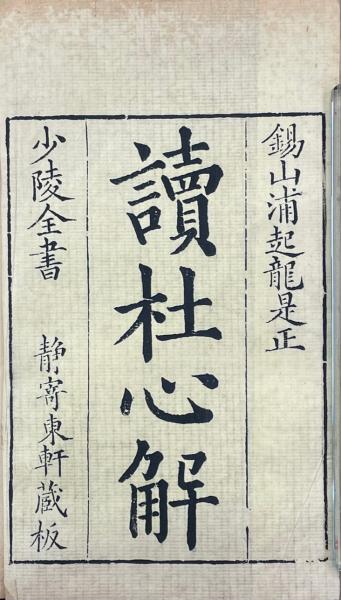 錫山浦起龍是正
讀杜心解
少陵全書 静寄東軒藏板